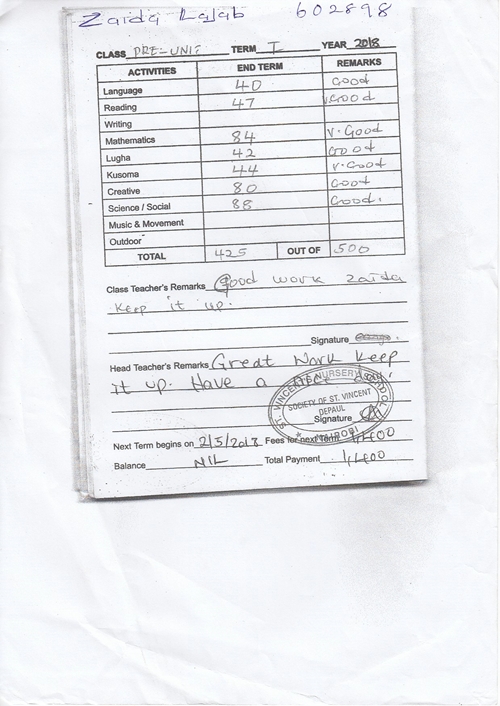 Zaida Lalab 602898
CLASS PRE-UNIT TERM I YEAR 2018
ACTIVITIES END TERM REMARKS
Language 40 Good
Reading 47 V.Good
Writing
Mathematics 84 V.Good
Lugha 42 Good
Kusoma 44 V.Good
Creative 80 Good
Science / Social 88 Good.
Music & Movement
Outdoor
TOTAL 425 OUT OF 500
Class Teacher's Remarks Good work zaida
keep it up.
Signature
Head Teacher's Remarks Great Work keep
it up. Have a
ST. VINCENTS NURSERY SCHOOL
SOCIETY OF ST. VINCENT
DEPAUL
Signature
NAIROBI
Next Term begins on 2/5/2018 Fees for next Term 1,400
Balance NIL Total Payment 1,400